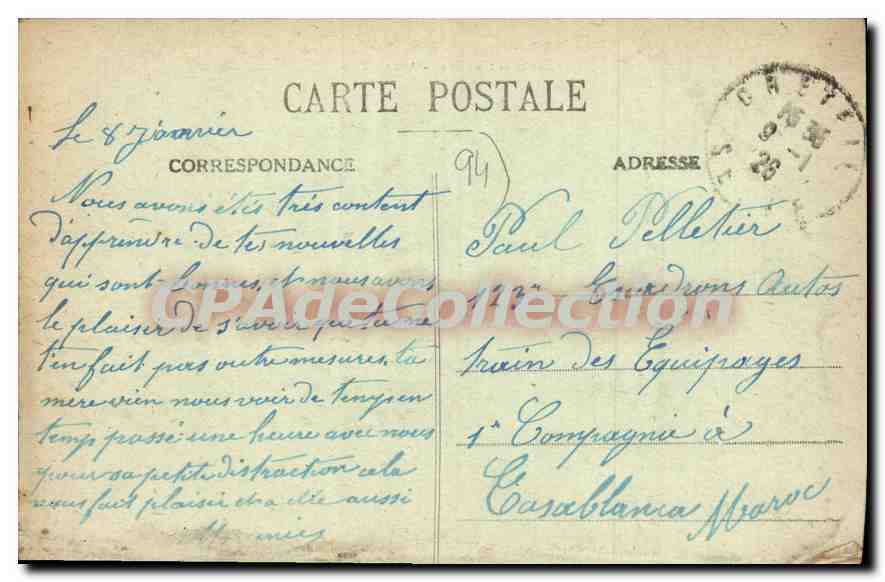 CARTE POSTALE
Le 8 Janvier
CORRESPONDANCE
Nous avons étés trés content
d'apprendre de tes nouvelles
qui sont bonnes, et nous avons
le plaisir de savoir que tu ne
t'en fait pas outre mesures, ta
mere vien nous voir de temps en
temp passé une heure avec nous
pour sa petite distraction cela
nous fait plaisir et a elle aussi
94
ADRESSE
9 -1
26
Paul Pelletier
123e Escadrons Autos
train des Equipages
1e Compagnie à
Casablanca Maroc
CPAdeCollection